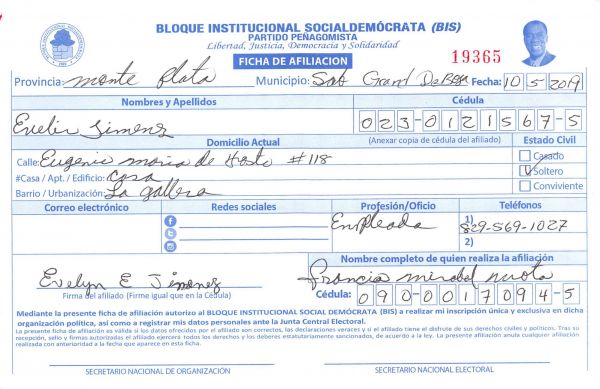 BLOQUE INSTITUCIONAL SOCIALDEMÓCRATA (BIS)
PARTIDO PEÑAGOMISTA
Libertad, Justicia, Democracia y Solidaridad
FICHA DE AFILIACION
19365
Provincia: monte plata Municipio: Sab Grand De Boya Fecha: 10-5-2019
Nombres y Apellidos Cédula
Evelin Jimenez 023-0121567-5
Domicilio Actual (Anexar copia de cédula del afiliado) Estado Civil
Calle: Eugenio maria de Hosto #118 Casado
#Casa / Apt. / Edificio: casa Soltero
Barrio / Urbanización: La gallera Conviviente
Correo electrónico Redes sociales Profesión/Oficio Teléfonos
Empleada 1) 829-569-1027
2)
Nombre completo de quien realiza la afiliación
Evelyn E Jimenez francia mirabal
Firma del afiliado (Firme igual que en la Cédula) Cédula: 090-0017094-5
Mediante la presente ficha de afiliación autorizo al BLOQUE INSTITUCIONAL SOCIAL DEMÓCRATA (BIS) a realizar mi inscripción única y exclusiva en dicha
organización política, así como a registrar mis datos personales ante la Junta Central Electoral.
La presente ficha de afiliación es válida si los datos ofrecidos por el afiliado son correctos, las declaraciones veraces y si el afiliado tiene el disfrute de sus derechos civiles y políticos. Tras su
recepción, sello y firmas autorizadas el afiliado ejercerá todos los derechos y los deberes estatutariamente sancionados, de acuerdo a la ley. La presente afiliación anula cualquier afiliación
realizada con anterioridad a la fecha que aparece en esta ficha.
SECRETARIO NACIONAL DE ORGANIZACIÓN SECRETARIO NACIONAL ELECTORAL